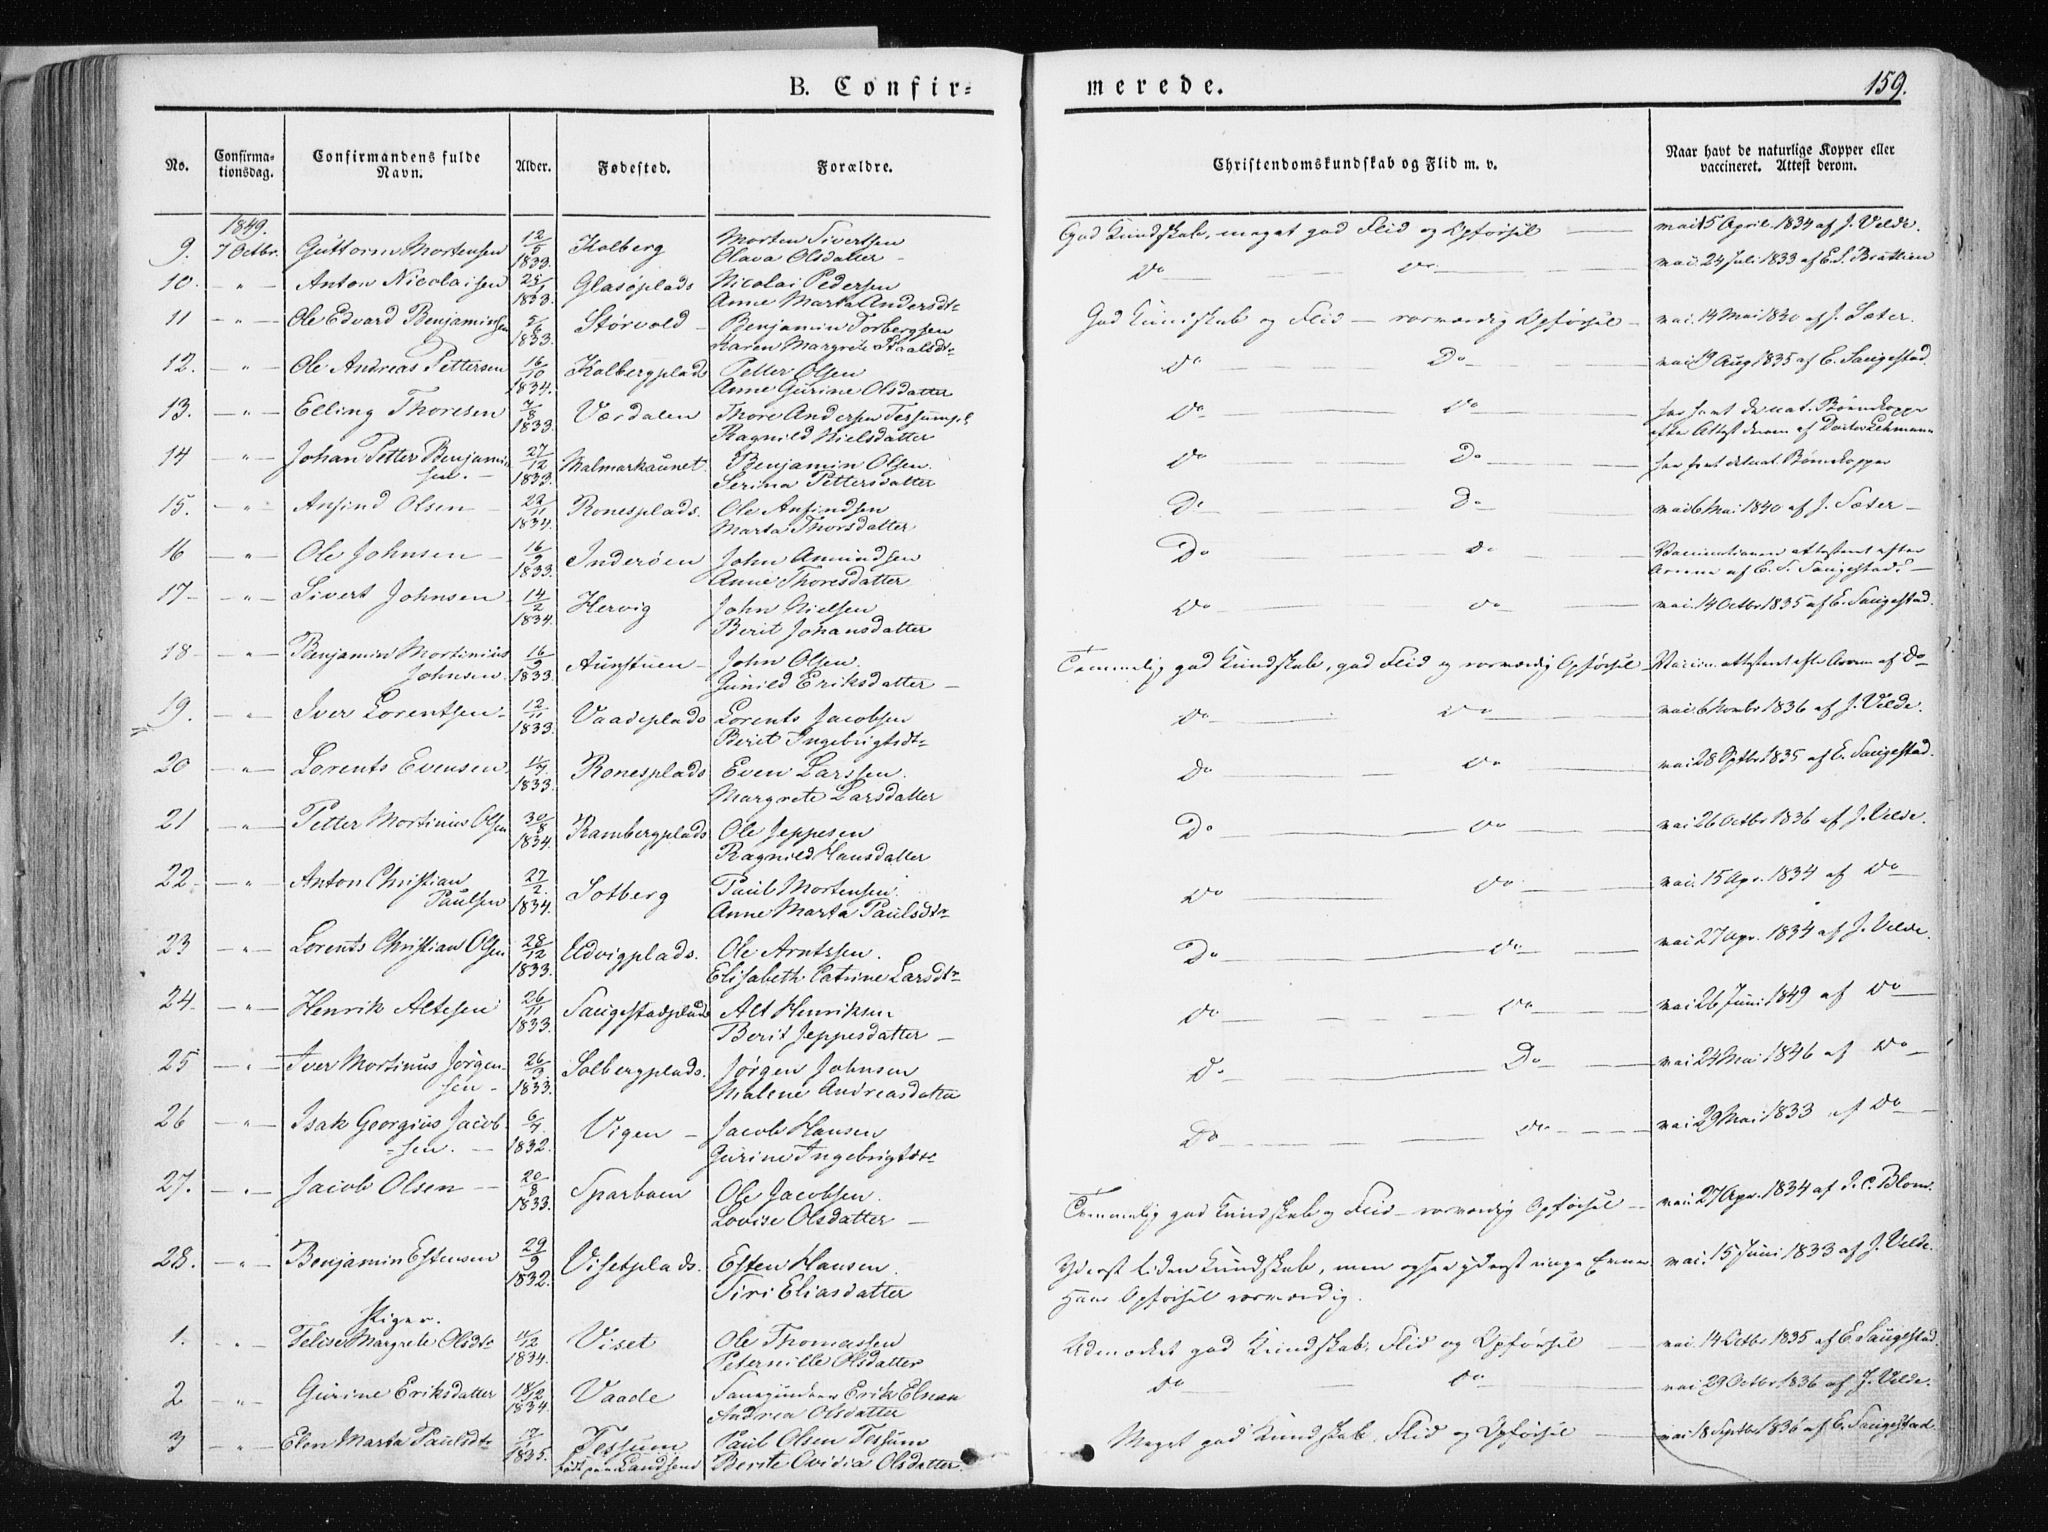 B. Confir-
merede.
159.
No.
Confirma-
tionsdag.
Confirmandens fulde
Navn.
Alder.
Fødested.
Forældre.
Christendomskundskab og Flid m. v.
Naar havt de naturlige Kopper eller
vaccineret. Attest derom.
1849.
9. 7 Octbr. Guttorm Mortensen 12/5 1833. Holberg Morten Sivertsen
Olava Olsdatter
God Kundskab, meget god Flid og Opførsel vac. 15 April 1834 af J. Velde.
10. " Anton Nicolaisen 1833. Glasøplads Nicolai Pedersen
Anne Marta Andersdtr
Do Do vac. 24 Juli 1833 af
11 " Ole Edvard Benjaminsen 5/6 1833. Størvold Benjamin Torbergsen
Karen Margrete
God Kundskab og Flid - rosværdig Opførsel vac. 14 Mai 1840 af J. Sæter.
12. " Ole Andreas Pettersen 16/10 1834. Holbergplads Petter Olsen
Anne Gurine Olsdatter
Do Do vac. Aug 1835 af E. Saugestad.
13. " Elling Thoresen 7/8 1833. Værdalen Thore Andersen
Ragnild Nielsdatter
Do Do har havt de nat. Børnekopper
efter Attest derom af Doctor Lehmann
14 " Johan Petter Benjamin-
sen. 27/12 1833. Malmarkaunet. Benjamin Olsen.
Serina Pettersdatter
Do Do har havt de nat. Børnekopper
15. " Anfind Olsen 22/11 1834. Ronesplads. Ole Anfindsen
Marta Thorsdatter
Do Do vac. 6 Mai 1840 af J. Sæter
16 " Ole Johnsen 16/9 1833. Inderøen John Amundsen
Anne Thoresdatter
Do Do Vaccinationen attesteret efter
af E. S. Saugestad.
17 " Sivert Johnsen 14/2 1834. Hervig John Nielsen
Berit Johansdatter
Do Do vac. 14 Octbr 1835 af E. Saugestad.
18 " Benjamin Mortinius
Johnsen 16/9 1833. Aunstuen John Olsen.
Gunild Eriksdatter
Temmelig god Kundskab, god Flid og rosværdig Opførsel Vaccin. attesteret efter af Do
19. " Iver Lorentsen 12/11 1833. Vaadeplads Lorents Jacobsen
Berit Ingebrigtsdtr
Do Do vac. 6 Novbr 1836 af J. Velde.
20 " Lorents Evensen 1833. Ronesplads Even Larssen.
Margrete Larsdatter
Do Do vac. 28 Septbr 1835 af E. Saugestad.
21 " Petter Mortinus Olsen 30/8 1834. Rambergplads Ole Jeppesen
Ragnild Hansdatter
Do Do vac. 26 Octbr 1836 af J. Velde.
22. " Anton Christian
Paulsen 27/2. 1834. Solberg Paul Mortensen.
Anne Marta Paulsdtr
Do Do vac. 15 Apr. 1834 af Do
23 " Lorents Christian Olsen 28/12 1833. Udvigplads. Ole Arntssen.
Elisabeth Catrine Larsdtr
Do Do vac. 27 Apr. 1834 af J. Velde.
24. " Henrik Altesen 26/11 1833. Saugestadplads Alt Henriksen
Berit Jeppesdatter
Do Do vac. 26 Juni 1849 af Do
25 " Iver Mortinus Jørgen-
sen 26/3. 1833. Solbergplads. Jørgen Johnsen
Malene Andreasdatter
Do Do vac. 24 Mai 1846 af Do
26 " Isak Georgius Jacob-
sen. 1832. Vigen Jacob Hansen
Gurine Ingebrigtsdtr
Do Do vac. 29 Mai 1833 af Do
27. " Jacob Olsen 20/8 1833. Sparboen Ole Jacobsen.
Lovise Olsdatter
Temmelig god Kundskab og Flid - rosværdig Opførsel vac. 27 Apr. 1834 af J. C. Blom.
28. " Benjamin Estensen 29/9 1832. Visetplads. Esten Hansen.
Siri Eliasdatter
Yderst liden Kundskab, men ogsaa yderst ringe Evner
Hans Opførsel rosværdig.
vac. 15 Juni 1833 af J. Velde.
Piger.
1. " Felise Margrete Olsdtr 1834. Viset Ole Thomassen
Peternille Olsdatter
Udmærket god Kundskab, Flid og Opførsel vac. 14 Octbr 1835 af E. Saugestad.
2 " Gurine Eriksdatter 18/12 1834. Vaade Erik
Andrea Olsdatter
Do Do vac. 29 Octbr. 1836 af J. Velde.
3 " Elen Marta Paulsdtr 1835. Tessum
født paa Landsem
Paul Olsen Tessum
Berete Ovidia Olsdatter.
Meget god Kundskab, Flid og Opførsel vac. 18 Septbr 1836 af E. Saugestad